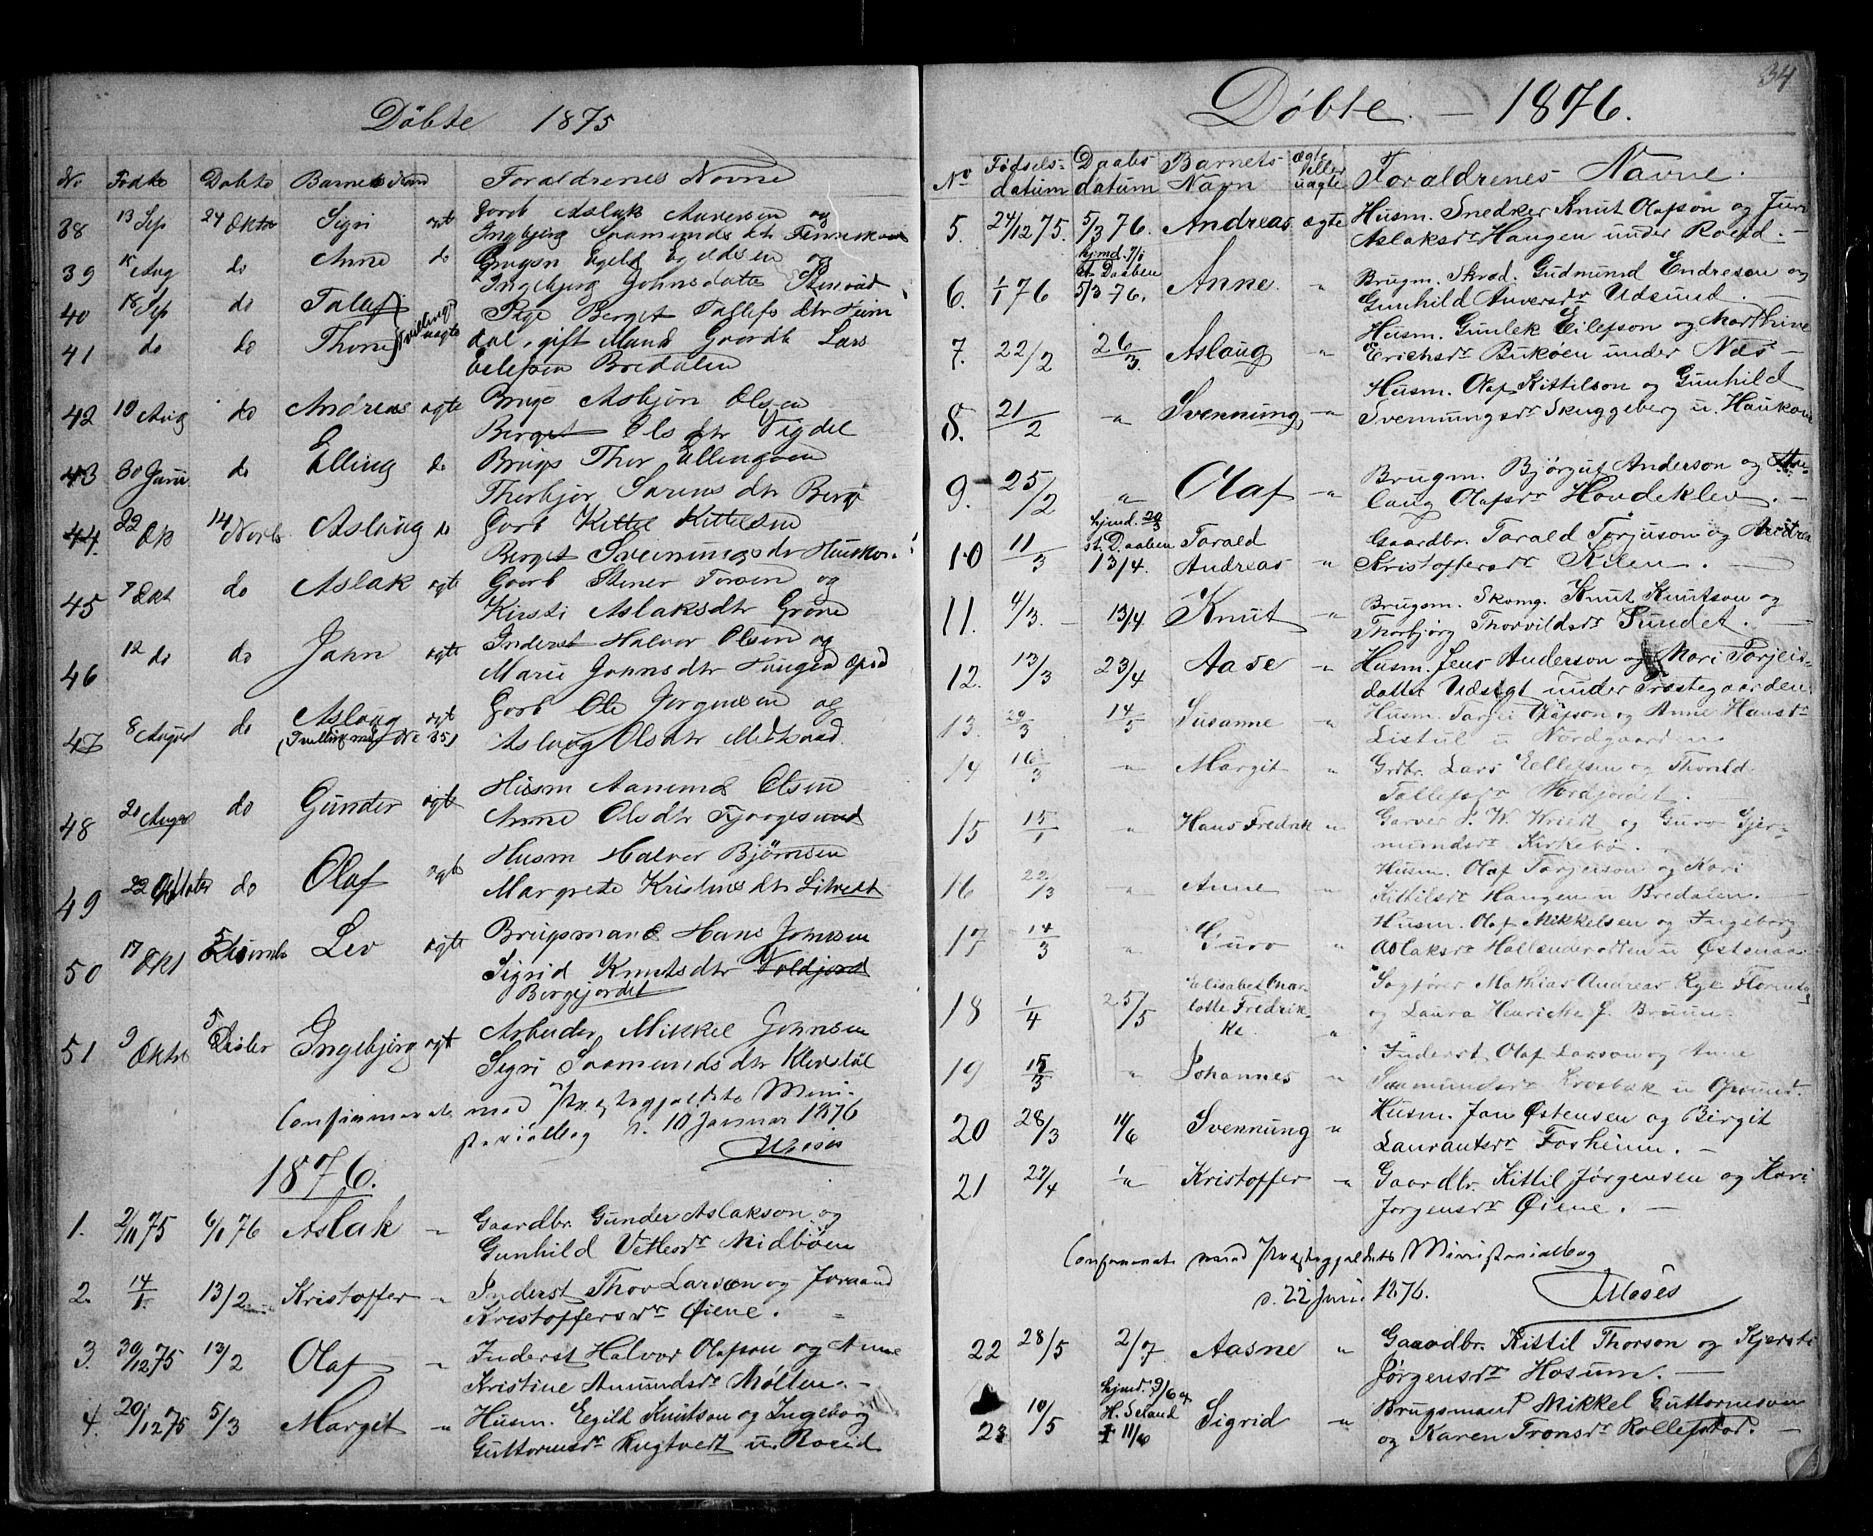 Döbte 1875
No Födte Döbte Barnets Navn Foraldrenes Navne
38 13 Sep 24 Oktr Sigri ægt Gorb Aslak Anversen og
Ingbjørg Saamunds dtr Tenneskaas
39 15 Aug do Anne do Brugsm Egeld Egeldsen og
Ingebjørg Johnsdatte
40 18 Sep do Talaf Tvilling Pige Berget Tallefs dtr Heim
41 do do Thone uægte dal, gift Mand Gaardb Lars
Eilefsen Bredalen
42 10 Aug do Andreas ægte Brugs Asbjøn Olsen
Berget Ols dtr Vigdel
43 30 Juni do Elling do Brugs Thor Ellingsen
Thorbjør Sørens dtr Berge
44 22 Ok 14 Novb Aslaug do Gorb Kittel Kittelsen
Berget Sveinungs dr
45 7 Okt do Aslak ægte Goorb Stener Torsen og
Kirsti Aslaksdtr Grave
46 12 do do John ægte Inderst Halvor Olsen og
Marie Johnsdtr Haugen
47 8 August do Aslaug ægt Gorb Ole Jørgensen og
(Tvilling med No 35) Aslaug Olsdtr
48 20 Augs do Gunder ægte Husm Aanund Olsen
Anne Olsdtr Fjaagesund
49 22 Oktober do Olaf ægte Husm Halvor Bjørnsen
Margrete Kristens dtr Litvedt
50 17 Okt 5 Lev ægte Brugsmand Hans Johnsen
Sigrid Knutsdtr Voldjord
Borgejordet
51 9 Oktr 5 Desbr Ingebjørg ægt Arbeider Mikkel Johnsen
Sigri Saamunds dtr Klevstøl
Conformerede med Præstegjældets Mini-
sterialbog d. 10 Januar 1876
Moses
1876.
1. 2/11 75 6/1 76 Aslak " Gaardbr. Gunder Aslakson og
Gunhild Vetlesdr Midbøen
2. 14/1. 13/2 Kristoffer " Inderst Thor Larsen og Joraand
Kristoffersdr Øiene.
3. 30/12 75 13/2 Olaf " Inderst Halvor Olafson og Anne
Kristine Amundsdr Molten. -
4. 20/12 75 5/3 Margit " Husm. Egild Knutson og Ingebog
Guttormsdr Rugtvedt u. Roeid
34
Döbte. - 1876.
No Fødsels- Daabs Barnets Ægte Foraldrenes Navne.
datum datum Navn eller uægte
5. 24/12 75. 5/3 76. Andreas ægte Husm. Snedker Knut Olafson og Juri
Aslaksdr Haugen under Roeid. -
6. 1/1 76 hjmd. 7/1 st. Daaben 5/3 76. Anne " Brugm. Skræd. Gudmund Endreson og
Gunhild Anversdr Udsund. -
7. 22/2 26/3. Aslaug " Husm. Gunlek Eilefson og Marthine
Erichsdr Bukøen under Næs -
8. 21/2 " Svennung " Husm. Olaf Kittilson og Gunhild
Svennungsdr Skuggeberg u. Haukom
9. 25/2 " Olaf " Brugm. Bjørguf Anderson og As-
laug Olafsdr Hovdeklev. -
10 11/3 hjmd. 20/3 st. Daaben 13/4. Torald Andreas " Gaardbr. Torald Torjuson og Andrea
Kristoffersdr Kilen. -
11. 4/3. 13/4 Knut " Brugsm. Skomg. Knut Knutson og
Thorbjørg Thorvildsdr Sundet. -
12. 13/3 23/4 Aase " Husm. Jens Anderson og Mari Torjeis-
datter Udsigt under Præstegaarden
13. 20/3 14/5 Susanne " Husm. Torjei Olafson og Anne Hansdr
Listul u Nordgaarden
14 16/3 " Margit " Grdbr. Lars Eellefsen og Thorild
Tallefsdr Nordjordet. -
15 15/1 " Hans Fredrik " Garver P. W. Wriedt og Guro Gjer-
mundsdr Kirkebø. -
16 22/3 " Anne " Husm. Olaf Torjerson og Kari
Kittilsdr Haugen u Bredalen. -
17 14/3 " Guro " Husm. Olaf Mikkelsen og Ingeborg
Aslaksdr Hollenderodden u Østenaa
18 1/4 25/5 Elisabet Char- lotte Fredrik- ke " Sagfører Mathias Andreas Rye Florentz
og Laura Henrikke J. Bruun.
19 15/3 " Johannes " Inderst. Olaf Larson og Anne
Saamundsdr Krosbæk u Opsund.
20 28/3 11/6 Svennung " Husm. Jan Østensen og Birgit
Laurantsdr Foskeim. -
21 27/4 " Kristoffer " Gaardbr. Kittil Jørgensen og Kari
Jørgensdr Øiene. -
Conformerede med Præstegjældets Ministerialbog
d. 22 Juni 1876. Moses
22 28/5 2/7. Aasne " Gaardbr. Kittil Thorson og Kjersti
Jørgensdr Hosum. -
23 10/5 hjmd. 9/6 af H. Seland 11/6 Sigrid " Brugsmand Mikkel Guttormson
og Karen Tronsdr Rollefstad. -